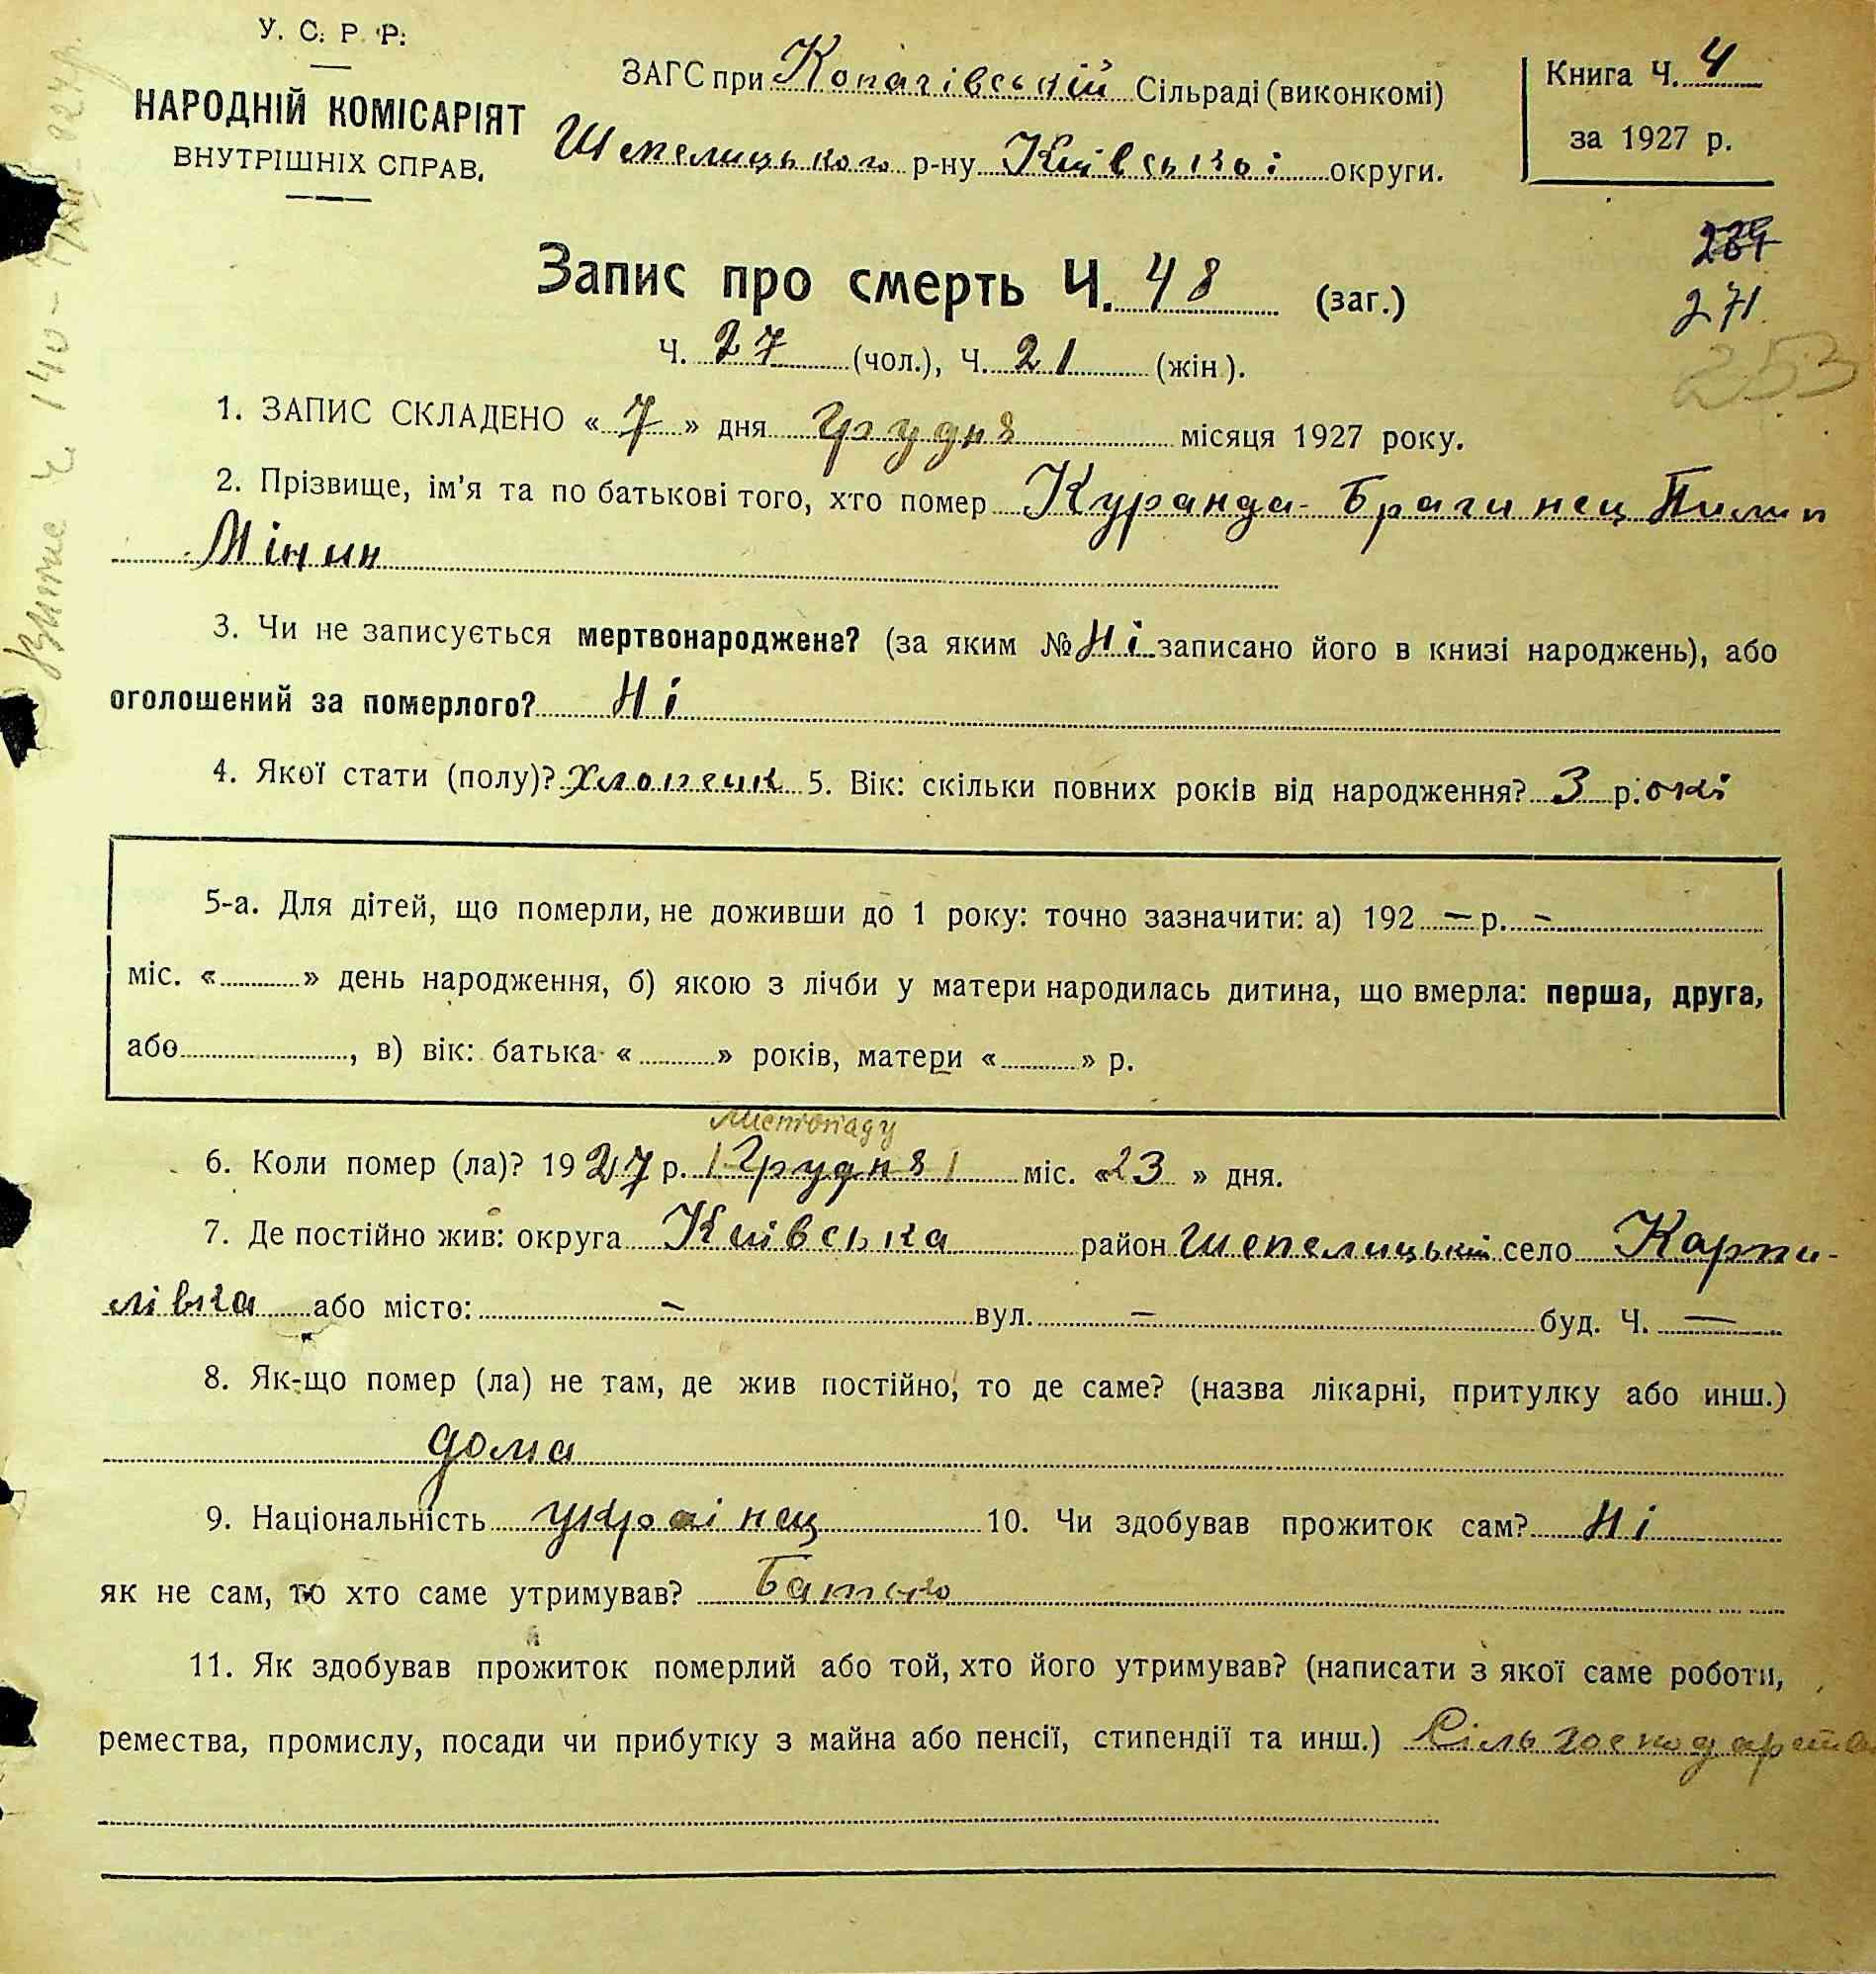 У. С. Р. Р.
НАРОДНІЙ КОМІСАРІЯТ
ВНУТРІШНІХ СПРАВ.
ЗАГС при Копачівській Сільраді (виконкомі)
Шепелицького р-ну Київської округи.
Книга Ч. 4
за 1927 р.
271
253
Запис про смерть Ч. 48 (заг.)
Ч. 27 (чол.), Ч. 21 (жін.).
1. ЗАПИС СКЛАДЕНО « 7 » дня Грудня місяця 1927 року.
2. Прізвище, ім'я та по батькові того, хто помер Куранда-Брагинец Пилип
Мінин
3. Чи не записується мертвонароджене? (за яким № Ні записано його в книзі народжень), або
оголошений за померлого? Ні
4. Якої стати (полу)? хлопчик 5. Вік: скільки повних років від народження? 3 р. окі
5-а. Для дітей, що померли, не доживши до 1 року: точно зазначити: а) 192 — р. —
міс. « » день народження, б) якою з лічби у матери народилась дитина, що вмерла: перша, друга,
або , в) вік: батька « » років, матери « » р.
Листопаду
6. Коли помер (ла)? 19 27 р. / Грудня / міс. «23 » дня.
7. Де постійно жив: округа Київська район Шепелицький село Карпи-
лівка або місто: — вул. — буд. Ч. —
8. Як-що помер (ла) не там, де жив постійно, то де саме? (назва лікарні, притулку або инш.)
дома
9. Національність украінец 10. Чи здобував прожиток сам? Ні
як не сам, то хто саме утримував? Батько
11. Як здобував прожиток померлий або той, хто його утримував? (написати з якої саме роботи,
ремества, промислу, посади чи прибутку з майна або пенсії, стипендії та инш.)